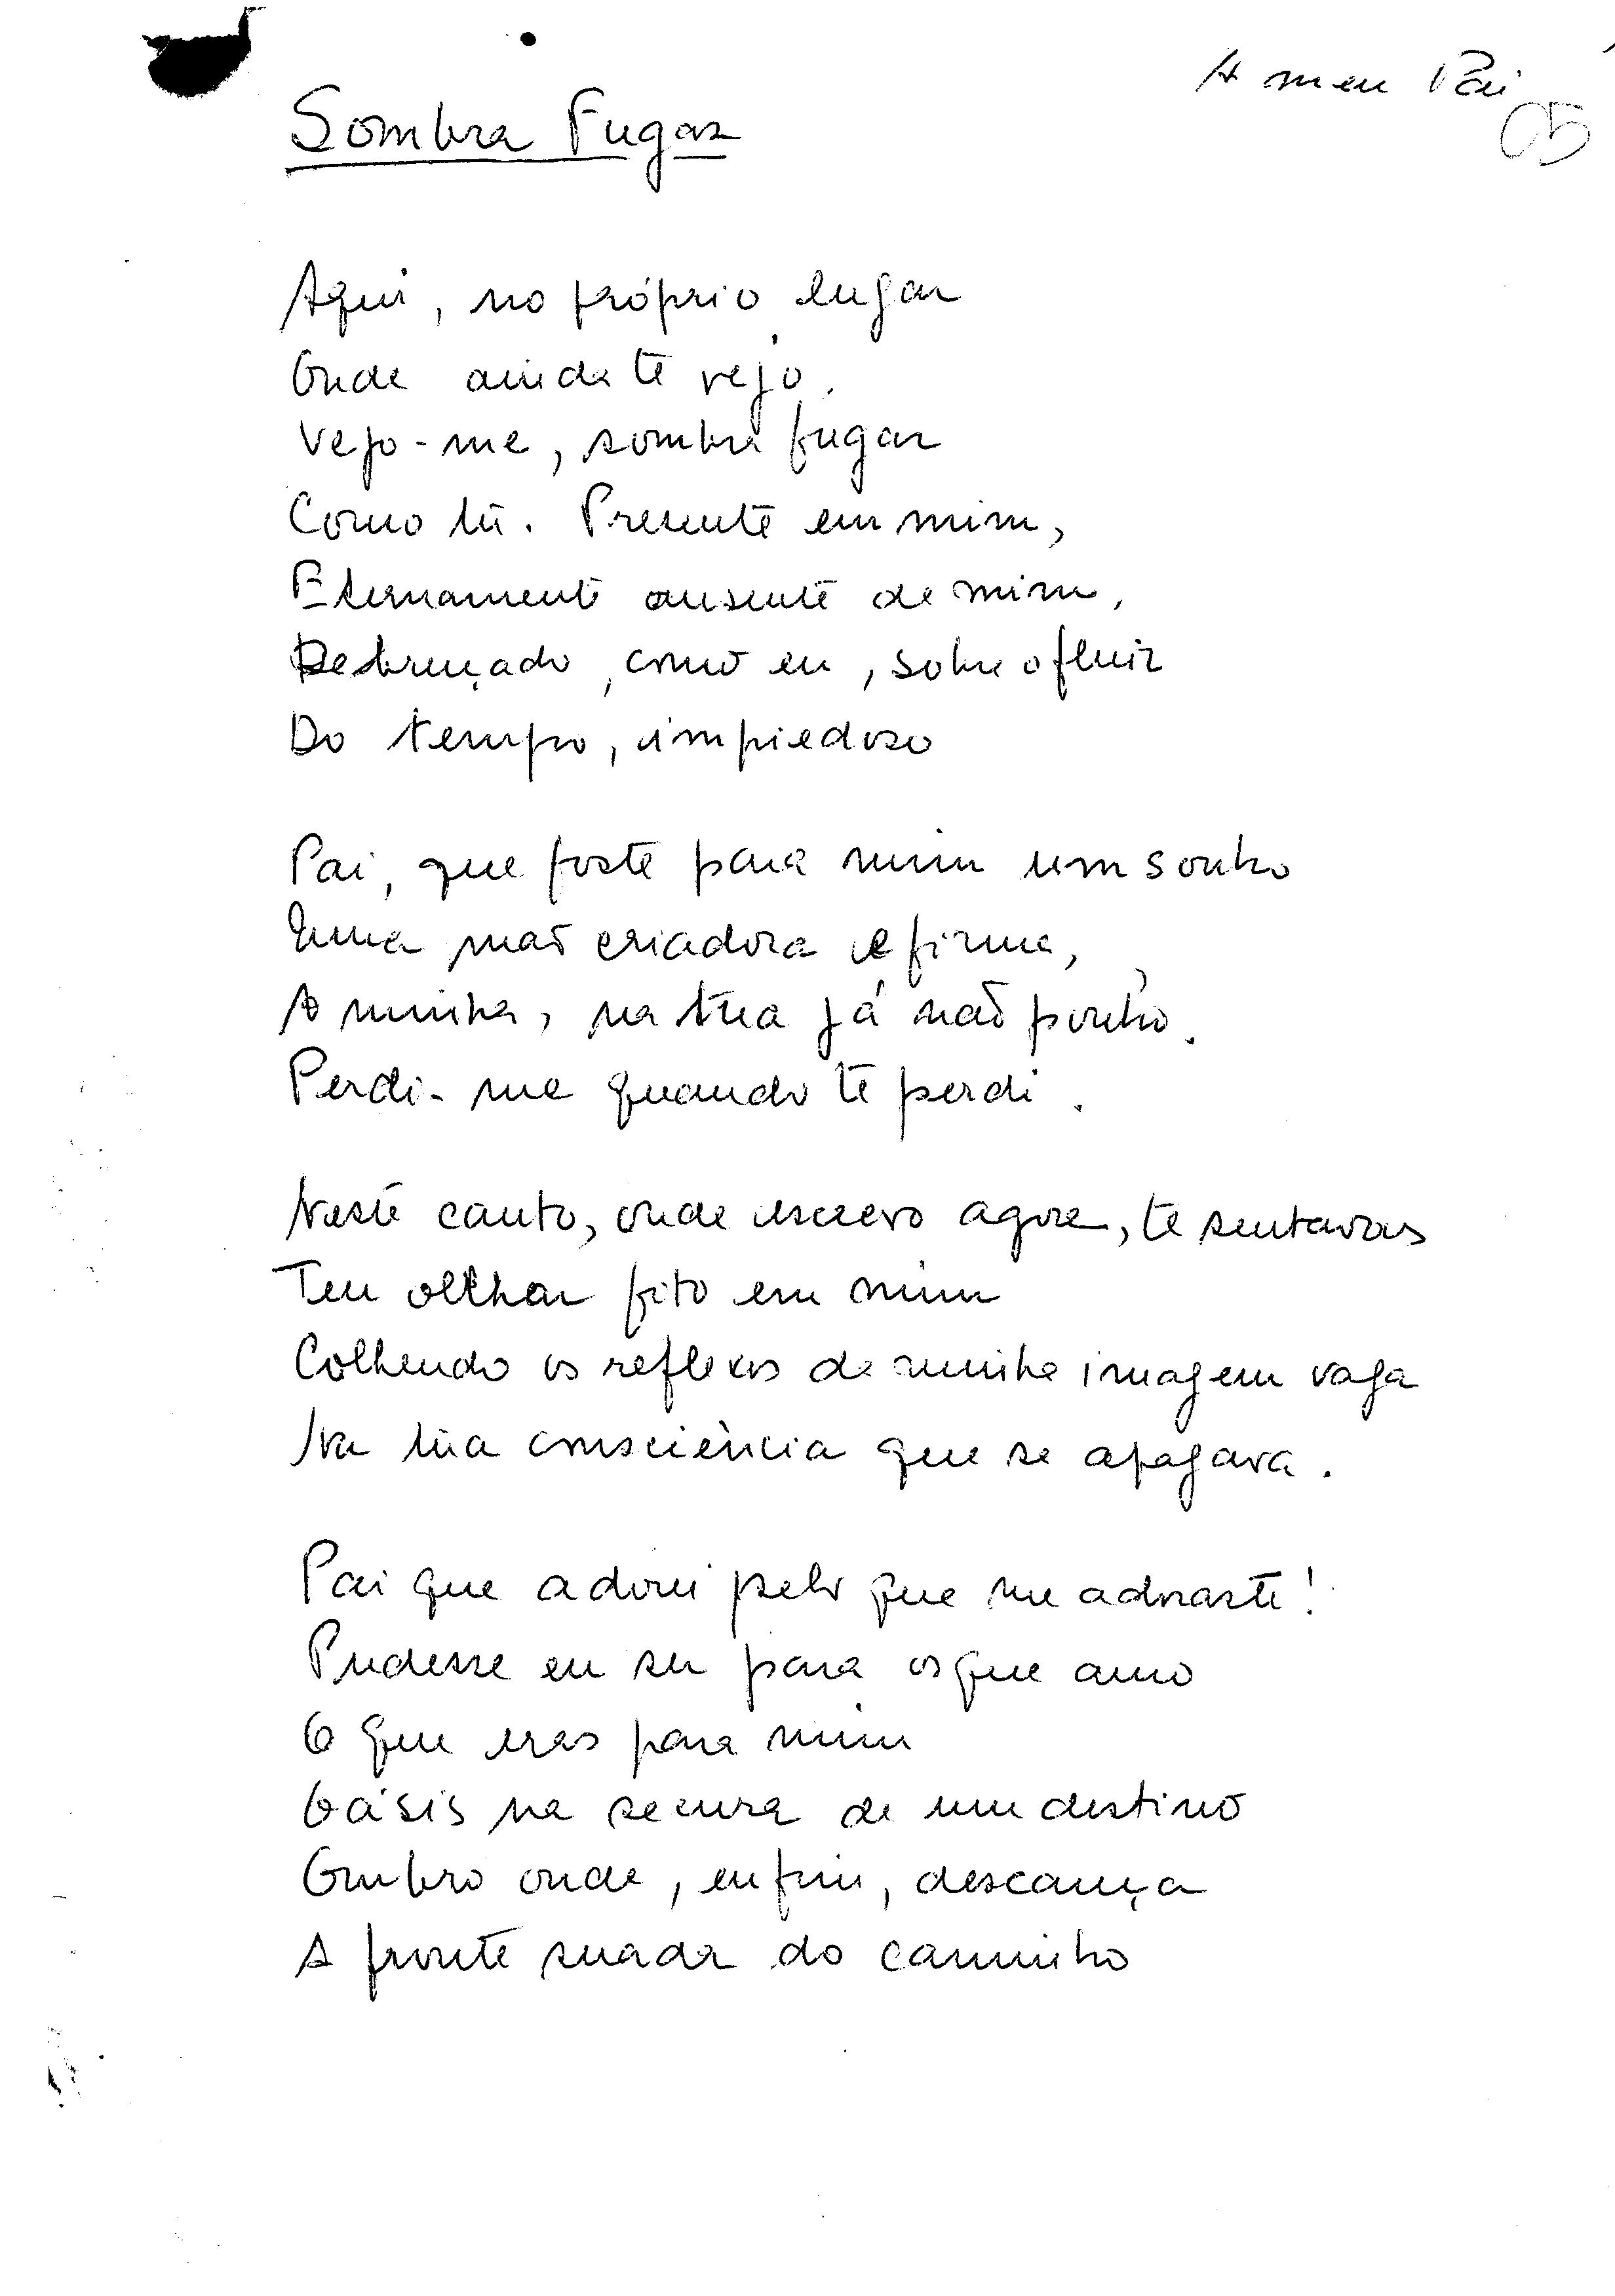 A meu Pai
05
Sombra Fugaz
Aqui, no próprio lugar
Onde ainda te vejo,
Vejo-me, sombra fugaz
Como tu. Presente em mim,
Eternamente ausente de mim,
Debruçado, como eu, sobre o fluir
Do tempo, impiedoso
Pai, que foste para mim um sonho
Uma mão criadora e firme,
A minha, na tua já não ponho.
Perdi-me quando te perdi.
Neste canto, onde escrevo agora, te sentavas
Teu olhar fito em mim
Colhendo os reflexos de minha imagem vaga
Na tua consciência que se apagava.
Pai que adorei pelo que me adoraste!
Pudesse eu ser para os que amo
O que eras para mim
Oásis na secura de um destino
Ombro onde, enfim, descança
A fronte suada do caminho